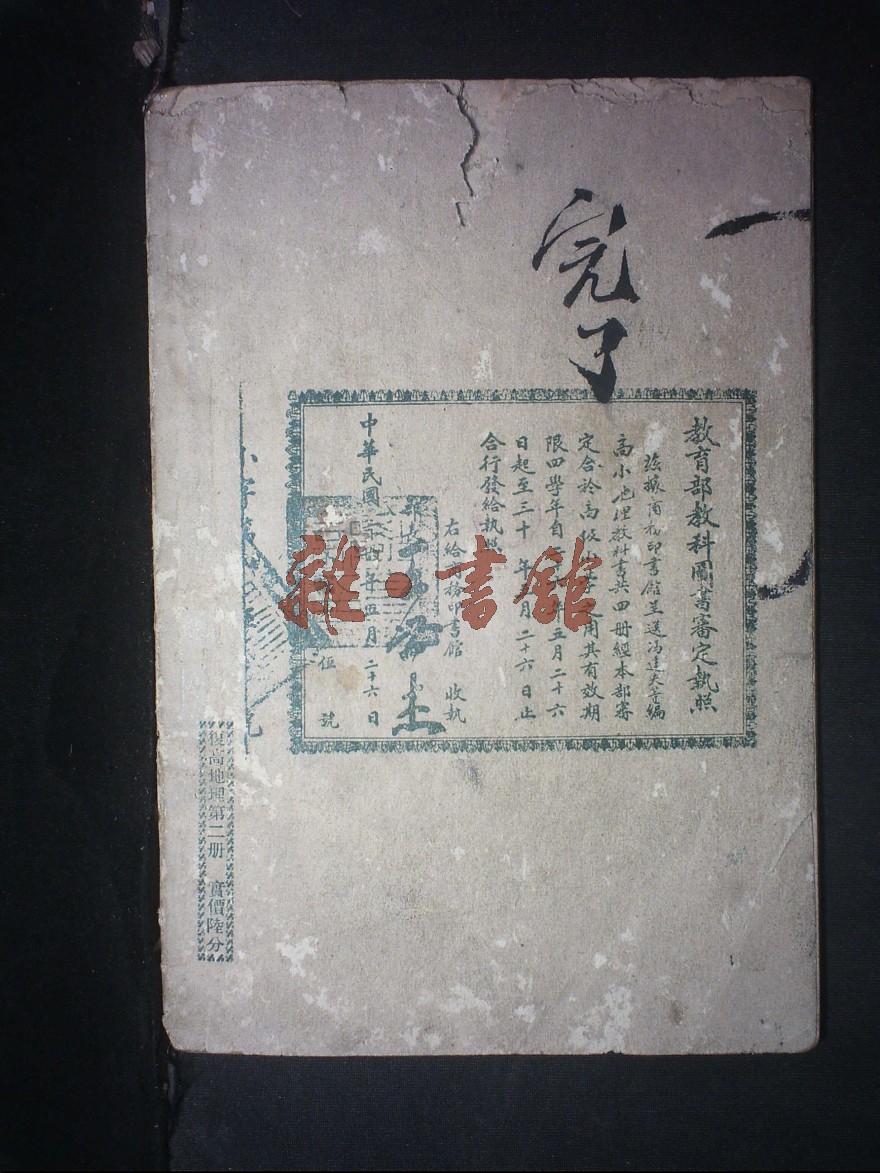 完了
教育部教科圖書審定執照
茲據商務印書館呈送馮達夫等編
高小地理教科書共四册經本部審
定合於高級小學之用其有效期
限四學年自二十年五月二十六
日起至三十年月二十六日止
合行發給執照
右給商務印書館 收執
中華民國二十四年五月二十六日
號
復高地理第二册 實價陸分
雜·書館